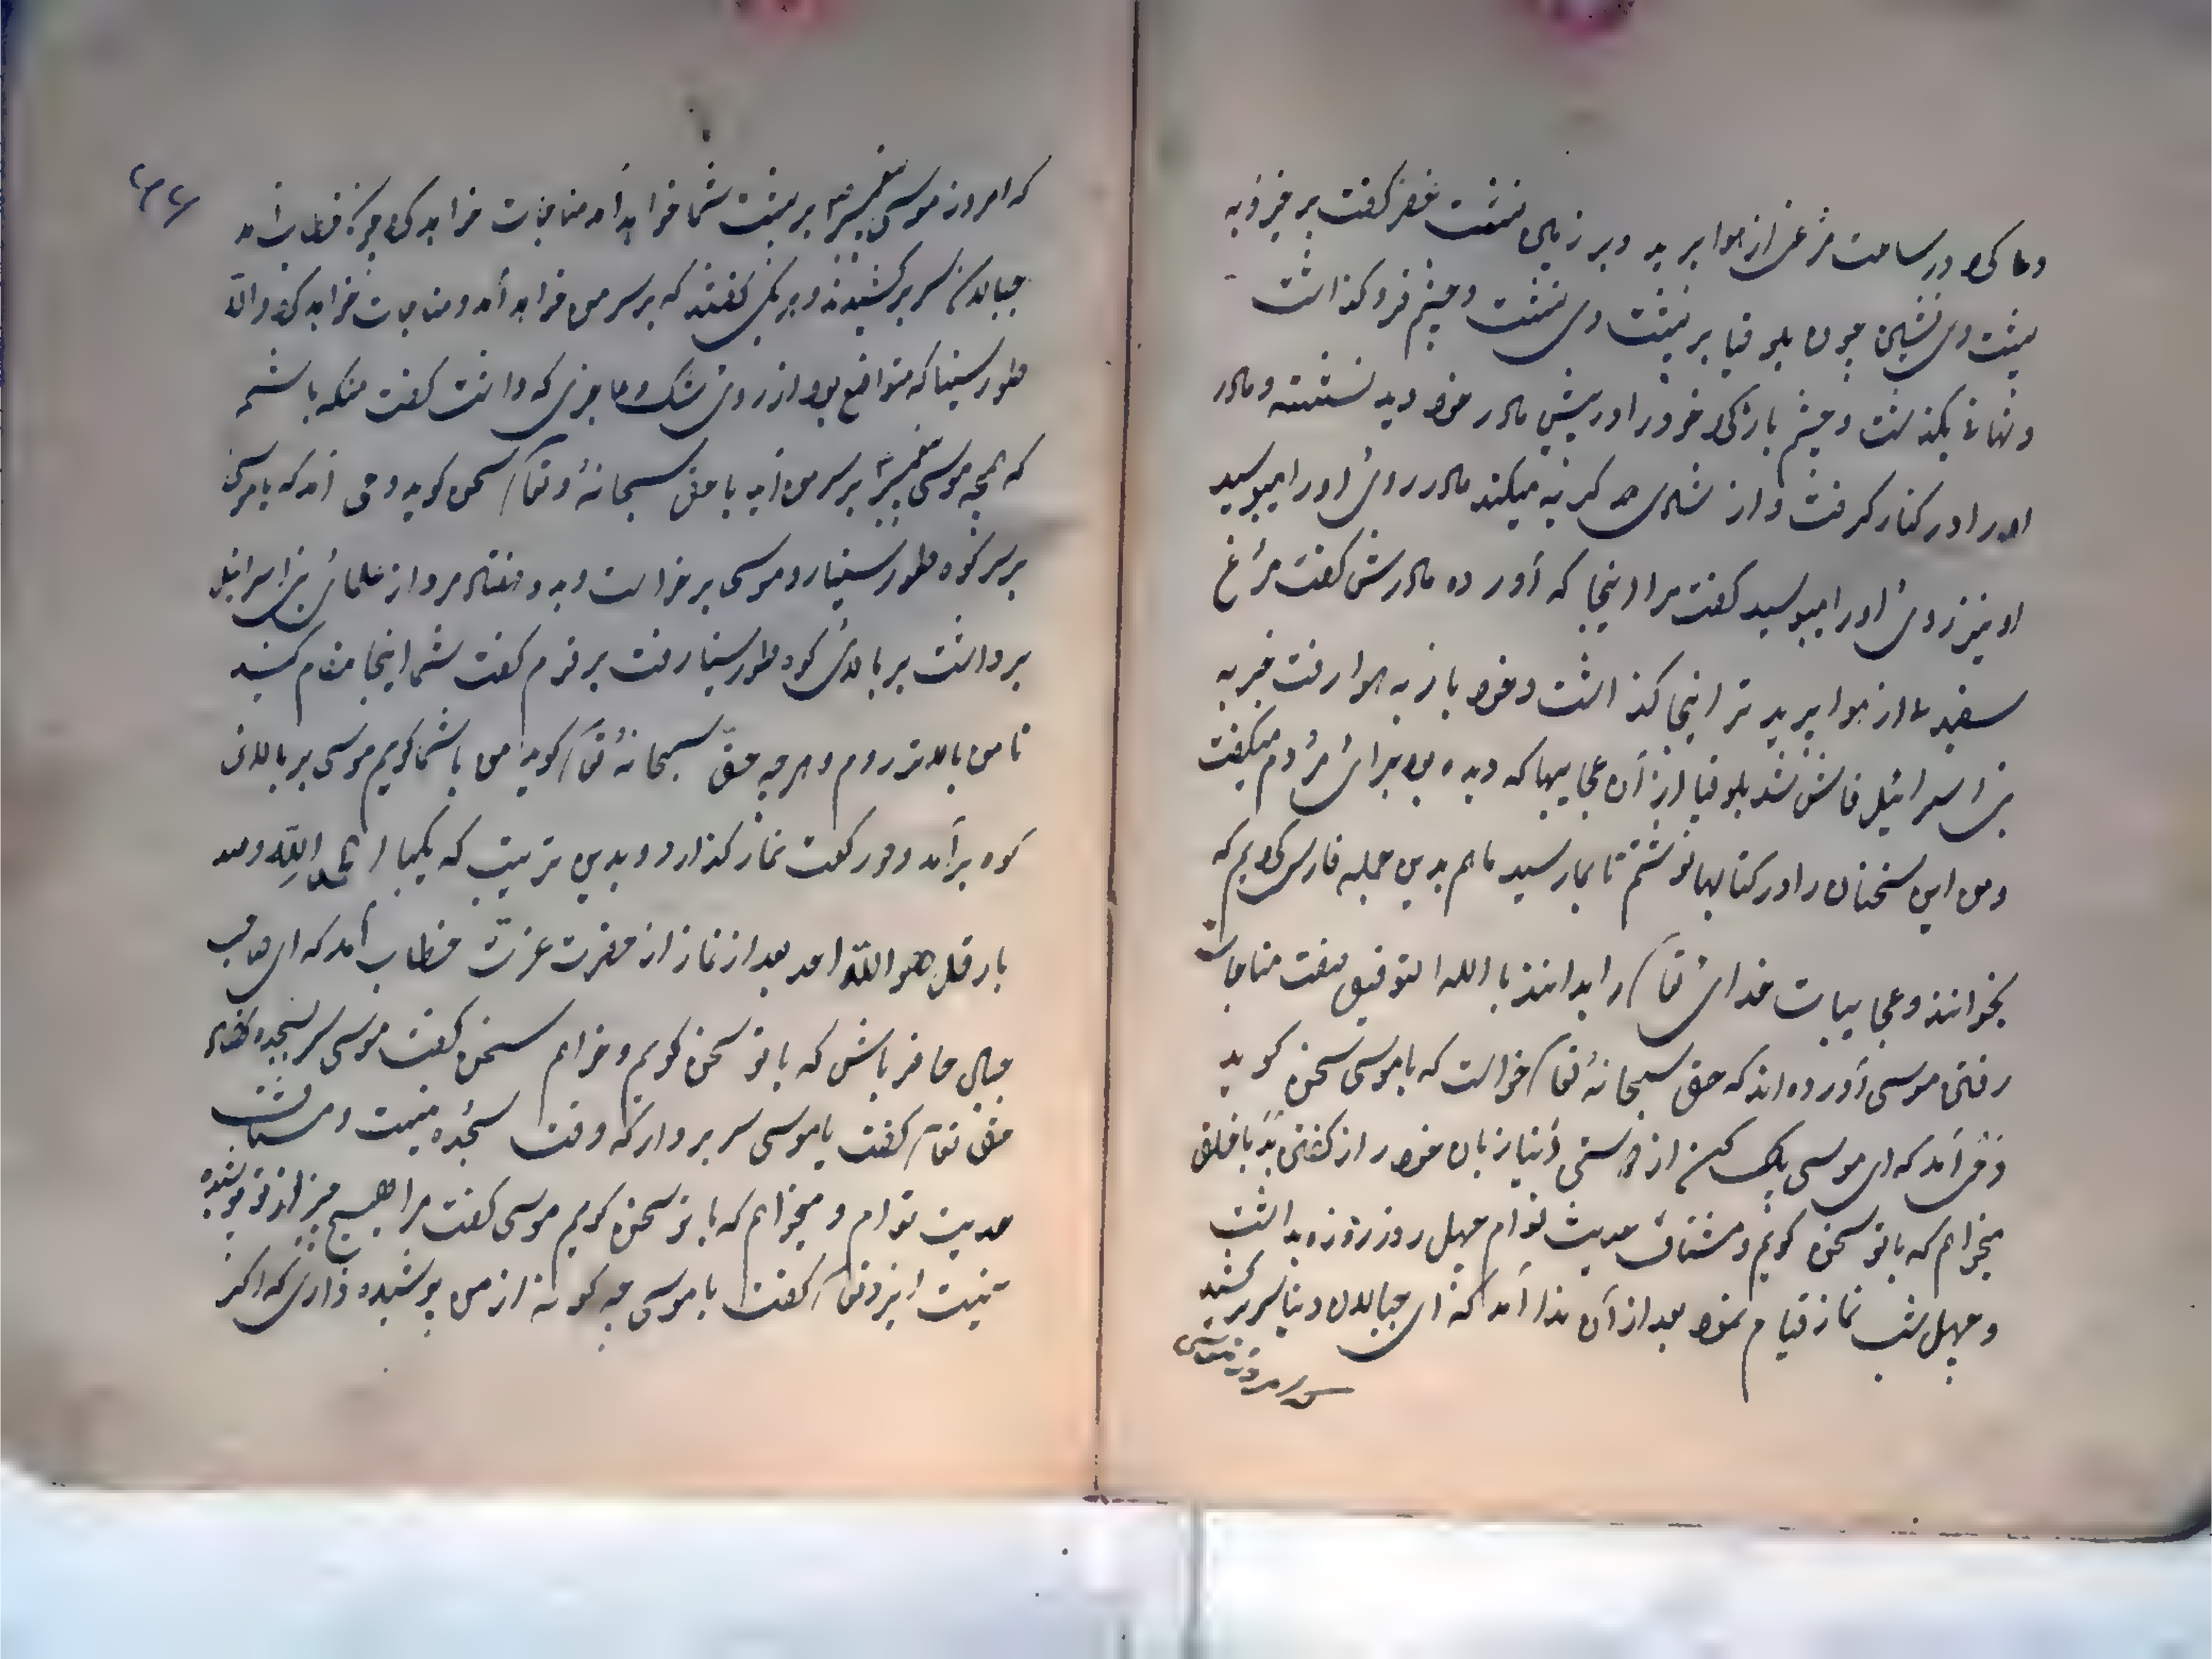 دعا کرد در ساعت مرغی از هوا برید و بر زمین نشست خضر گفت برخیز و به
پشت وی نشین چون بلوقیا بر پشت وی نشست و چشم فرو گذاشت
بگذشت و چشم باز کرد خود را در پیش مادر خود دید نشسته و مادر
او را در کنار گرفت و از شادی گریه میکند مادر روی او را میبوسید
او نیز روی او را میبوسید گفت مرا اینجا که آورده مادرش گفت مرغ
سفید از هوا برید ترا اینجا گذاشت و خود باز به هوا رفت خبر به
بنی اسرائیل فاش شد بلوقیا از آن عجایبها که دیده بود برای مردم میگفت
ومن این سخنان را در کتابها نوشتم تا بما رسید ما هم بدین جمله فارسی کردیم که
بخوانند و عجایبات خدای تعا را بدانند باالله التوفیق صفت مناجات
رفتن موسی آورده اند که حق سبحانهٔ تعا خواست که با موسی سخن گوید
وحی آمد که ای موسی پاک کن از دنیا زبان خود را از گفتن بد با خلق
میخواهم که با تو سخن گویم و مشتاق حدیث توام چهل روز روزه بداشت
و چهل شب نماز قیام نمود بعد از آن ندا آمد که ای جبالان دنیا سر برکشید
که امروز موسی
که امروز موسی پیغمبر بر پشت شما خواهد آمد مناجات خواهد کرد
جبالان سر برکشیدند و هر یکی گفتند که بر سر من خواهد آمد و مناجات خواهد کرد و الا
طور سینا که متواضع بود از روی شک و عاجزی که داشت گفت منکه باشم
که همچه موسی پیغمبر بر سر من آید با حق سبحانهٔ و تعا سخن گوید وحی آمد که یا موسی
بر سر کوه طور سینا رو موسی برخواست و هفتاد مرد از علمای بنی اسرائیل
برداشت بر بالای کوه طور سینا رفت بر قوم گفت شما اینجا مقام کنید
تا من بالاتر روم و هرچه حق سبحانهٔ تعا گوید من با شما گویم موسی بر بالای
کوه برآمد و دو رکعت نماز گذارد و بدین ترتیب که یکبار الحمد الله وصد
بار قل هو الله احد بعد از نماز از حضرت عزت خطاب آمد که ای صاحب
جبال حاضر باش که با تو سخن گویم و خواهم سخن گفت موسی سر بسجده نهاد
حق تعا گفت یا موسی سر بردار که وقت سجده نیست و مشتاق
حدیث توام و میخواهم که با تو سخن گویم موسی گفت مرا هیچ چیز از تو پوشیده
نیست ایزد تعا گفت یا موسی چه گونه از من پوشیده داری که اگر